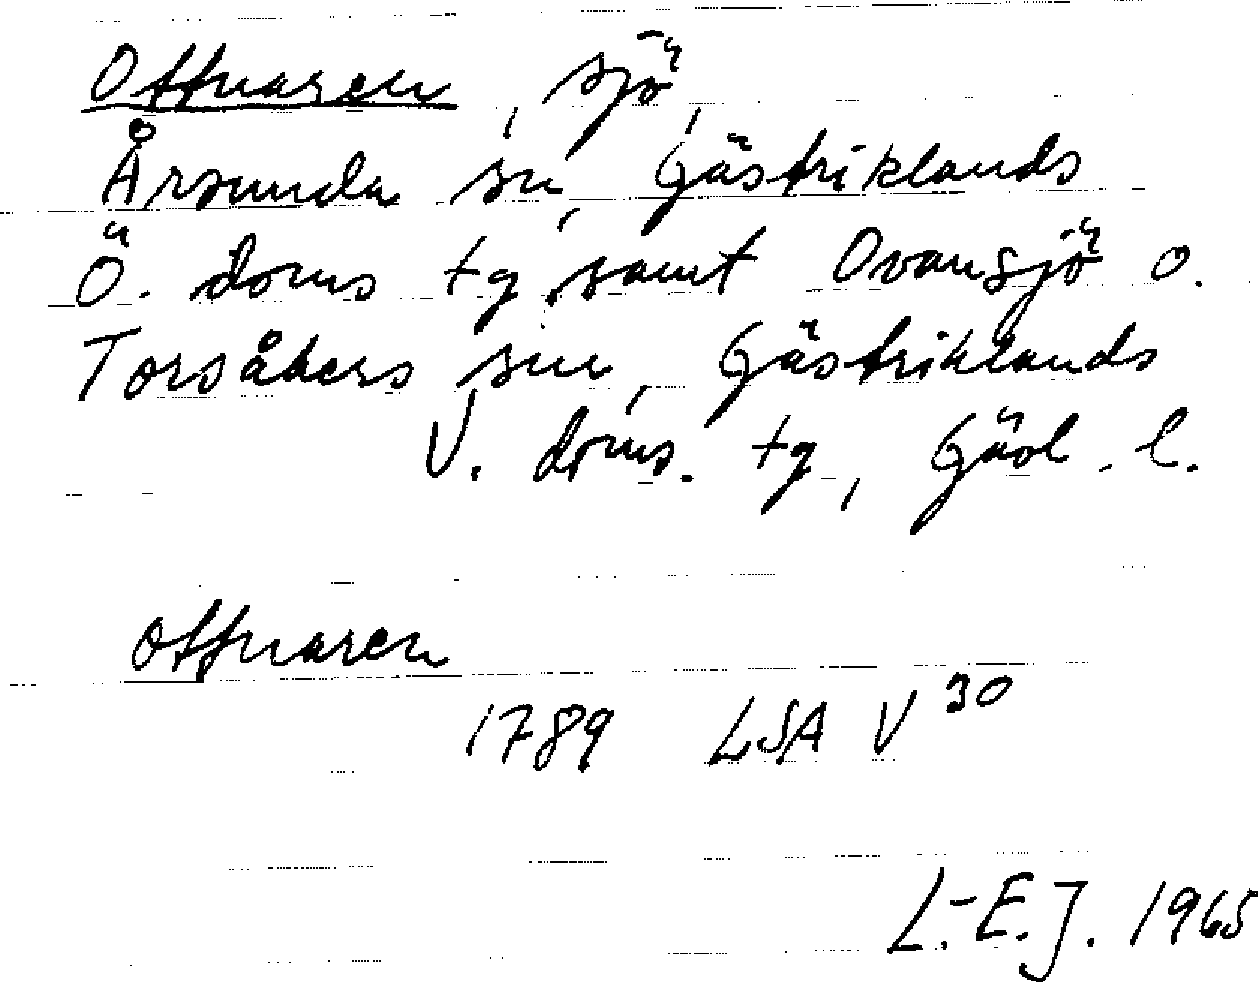 Ottnaren, sjö,
Årsunda sn, Gästriklands
Ö. doms tg, samt Ovansjö o.
Torsåkers snr, Gästriklands
V. doms. tg, Gävl. l.
Ottnaren
1789 LSA V 30
L.-E.J. 1965